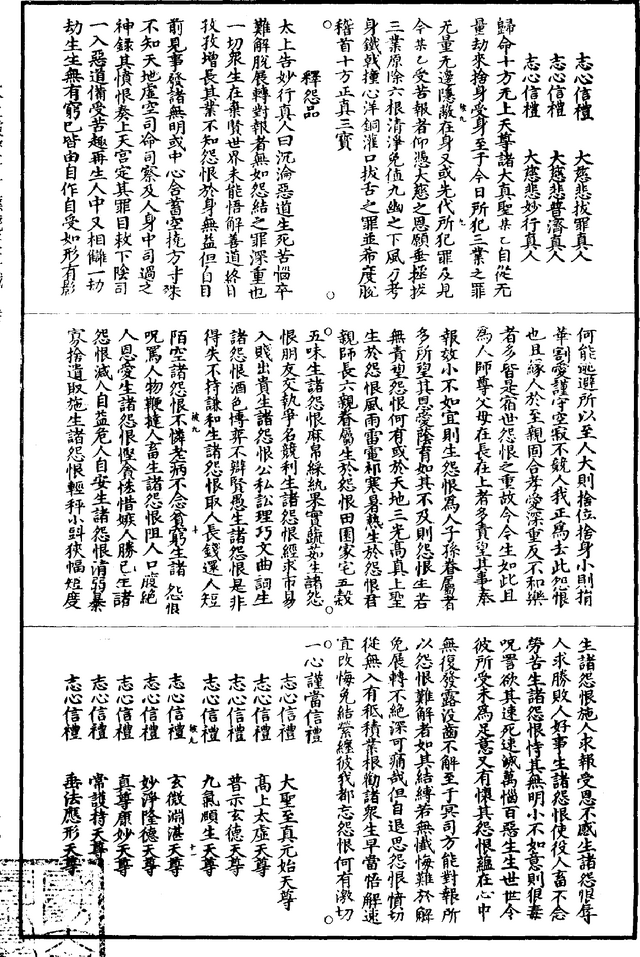 志心信禮　大慈悲拔罪真人
志心信禮　大慈悲普濟真人
志心信禮　大慈悲妙行真人
歸命十方无上天尊諸大真聖某乙自從无
量劫來捨身受身至于今日所犯三業之罪
无量无邊隱蔽在身又或先代所犯罪及見
今某乙受苦報者仰憑大慈之恩願垂拯拔
三業原除六根清淨免值九幽之下風刀考
身鐵戟撞心洋銅灌口拔舌之罪並希度脫
稽首十方正真三寶
釋怨品
太上告妙行真人曰沉淪惡道生死苦惱卒
難解脫展轉對報者無如怨結之罪深重也
一切衆生在棄賢世界未能悟解善道終日
孜孜增長其業不知怨恨於身無益但自目
前見事發諸無明或中心含蓄空撓方寸殊
不知天地虛空司命司察及人身中司過之
神録其憤恨奏上天宮定其罪目敕下陰司
一入惡道備受苦趣再生人中又相讎一切
劫生生無有窮已皆由自作自受如形有影
何能逃避所以至人大則捨位捨身小則捐
華割愛謹守空寂不競人我正爲去此怨恨
也且緣人於至親固合孝愛深重反不和樂
者多皆是宿世怨恨之重故今令生如此且
爲人師尊父母在長在上者多責望其事奉
報效小不如宜則生怨恨爲人子孫眷屬者
多所望其恩愛蔭育如其不及則怨恨生若
無責望怨恨何有或於天地三光高真上聖
生於怨恨風雨雷電祁寒暑熱生於怨恨君
親師長六親眷屬生於怨恨田園家宅五穀
五味生諸怨恨麻帛綵紈果實蔬茹生諸怨
恨朋友交執爭名競利生諸怨恨經求市易
入賤出貴生諸怨恨公私訟理巧文曲詞生
諸怨恨酒色博弈不辯賢愚生諸怨恨是非
得失不持謙和生諸怨恨取人長錢還人短
陌空諸怨恨不憐老病不念貧窮生諸怨恨
呪罵人物鞭撻人畜生諸怨恨阻人口腹絶
人恩愛生諸怨恨慳貪悋惜嫉人勝己生諸
怨恨減人自益危人自安生諸怨恨凊弱暴
寡捨遺取施生諸怨恨輕秤小斗狹幅短度
生諸怨恨施人求報受恩不感生諸怨恨辱
人求勝敗人好事生諸怨恨使役人畜不念
勞苦生諸怨恨恃其無明小不如意則狠毒
呪詈欲其速死速滅萬惱百惡生生世世令
彼所受未爲足意又有懷其怨恨蘊在心中
無復發露沒齒不解至于冥司方能對報所
以怨恨難解者如其結縛若無懺悔難於解
免展轉不絶深可痛哉但自退思怨恨憤切
從無入有積業根勸諸衆生早當悟解速
宜改悔免結縈纏彼我都忘怨恨何有激切
一心謹當信禮
志心信禮　大聖至真元始天尊
志心信禮　高上太虛天尊
志心信禮　普示玄德天尊
志心信禮　九氣願生天尊
志心信禮　玄微淵湛天尊
志心信禮　妙淨隆德天尊
志心信禮　真尊原妙天尊
志心信禮　常護持天尊
志心信禮　垂法應形天尊